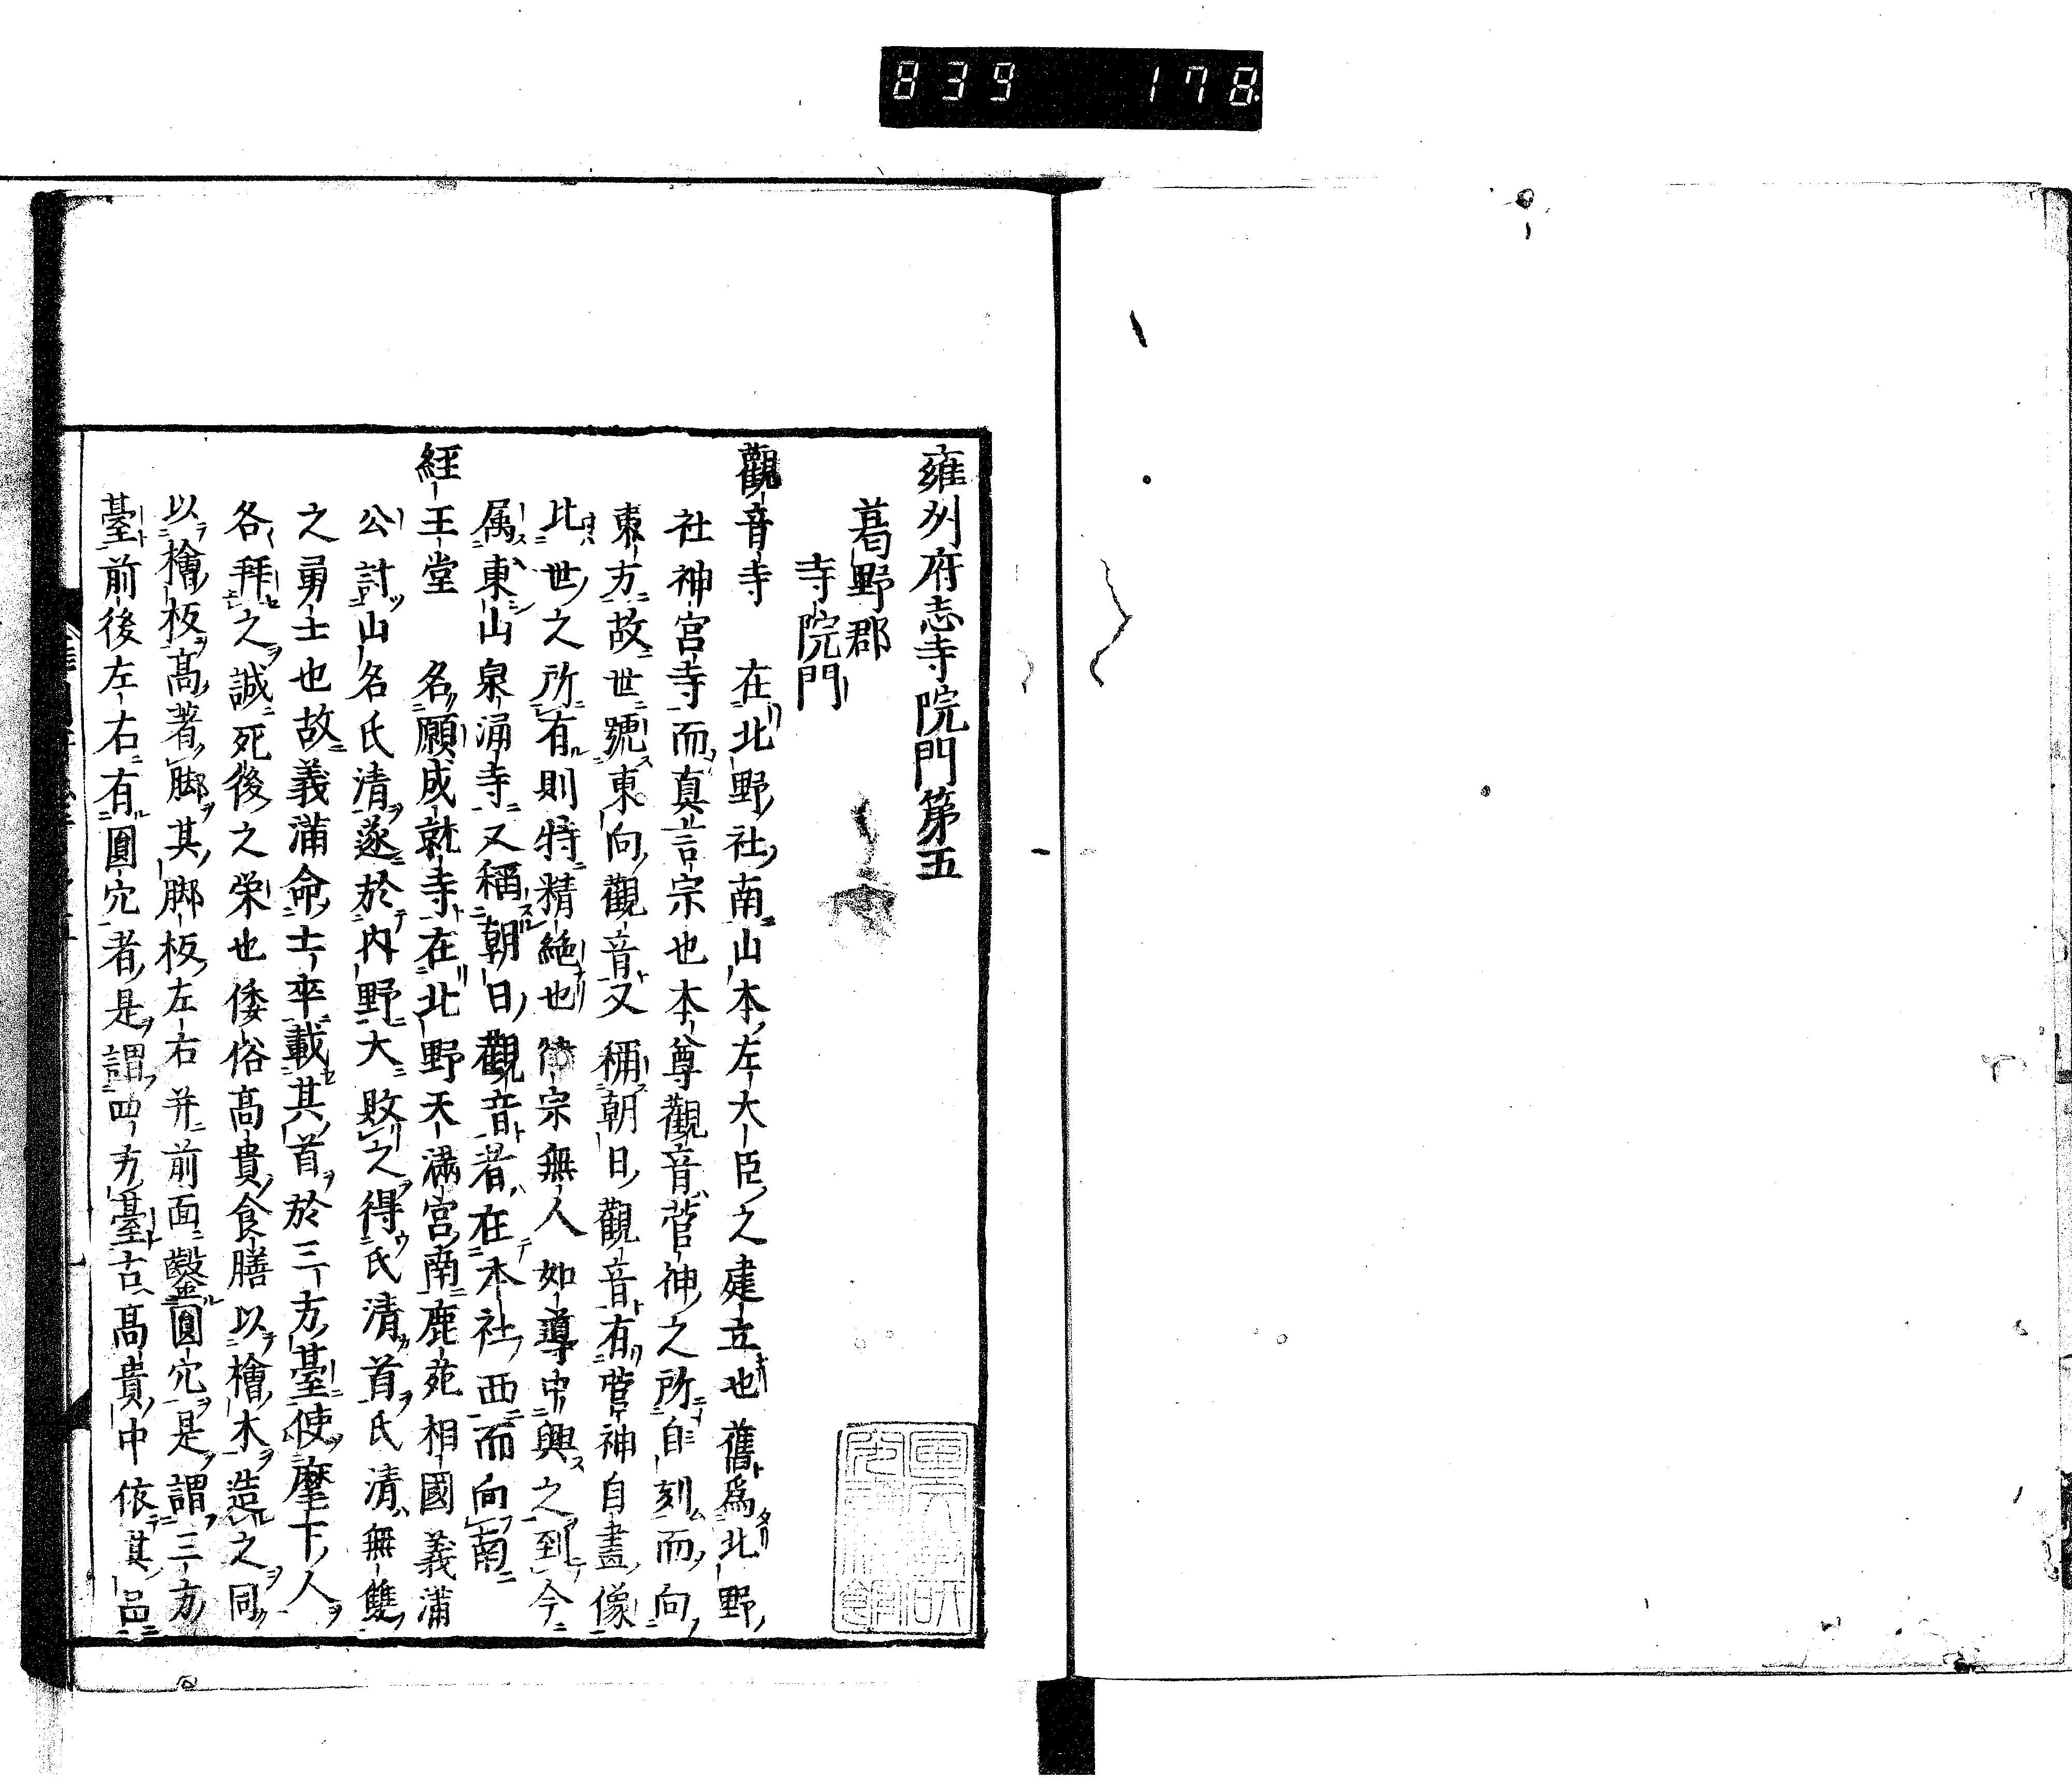 839 178
雍州府志寺院門第五
葛野郡
寺院門
觀音寺 在北野社南山本左大臣之建立也舊爲北野
社神宮寺而真言宗也本尊觀音菅神之所自刻而向
東方故世號東向觀音又稱朝日觀音有菅神自畫像
比世之所有則特精絶也律宗無人如導中興之到今
属東山泉涌寺又稱朝日觀音者在本社西而向南
經王堂 名願成就寺在北野天滿宮南鹿苑相國義滿
公討山名氏清遂於内野大敗之得氏清首氏清無雙
之勇士也故義滿命士卒載其首於三方臺使麾下人
各拜之誠死後之栄也倭俗高貴食膳以檜木造之同
以檜板高著脚其脚板左右并前面鑿圓穴是謂三方
臺前後左右有圓穴者是謂四方臺古高貴中依其邑